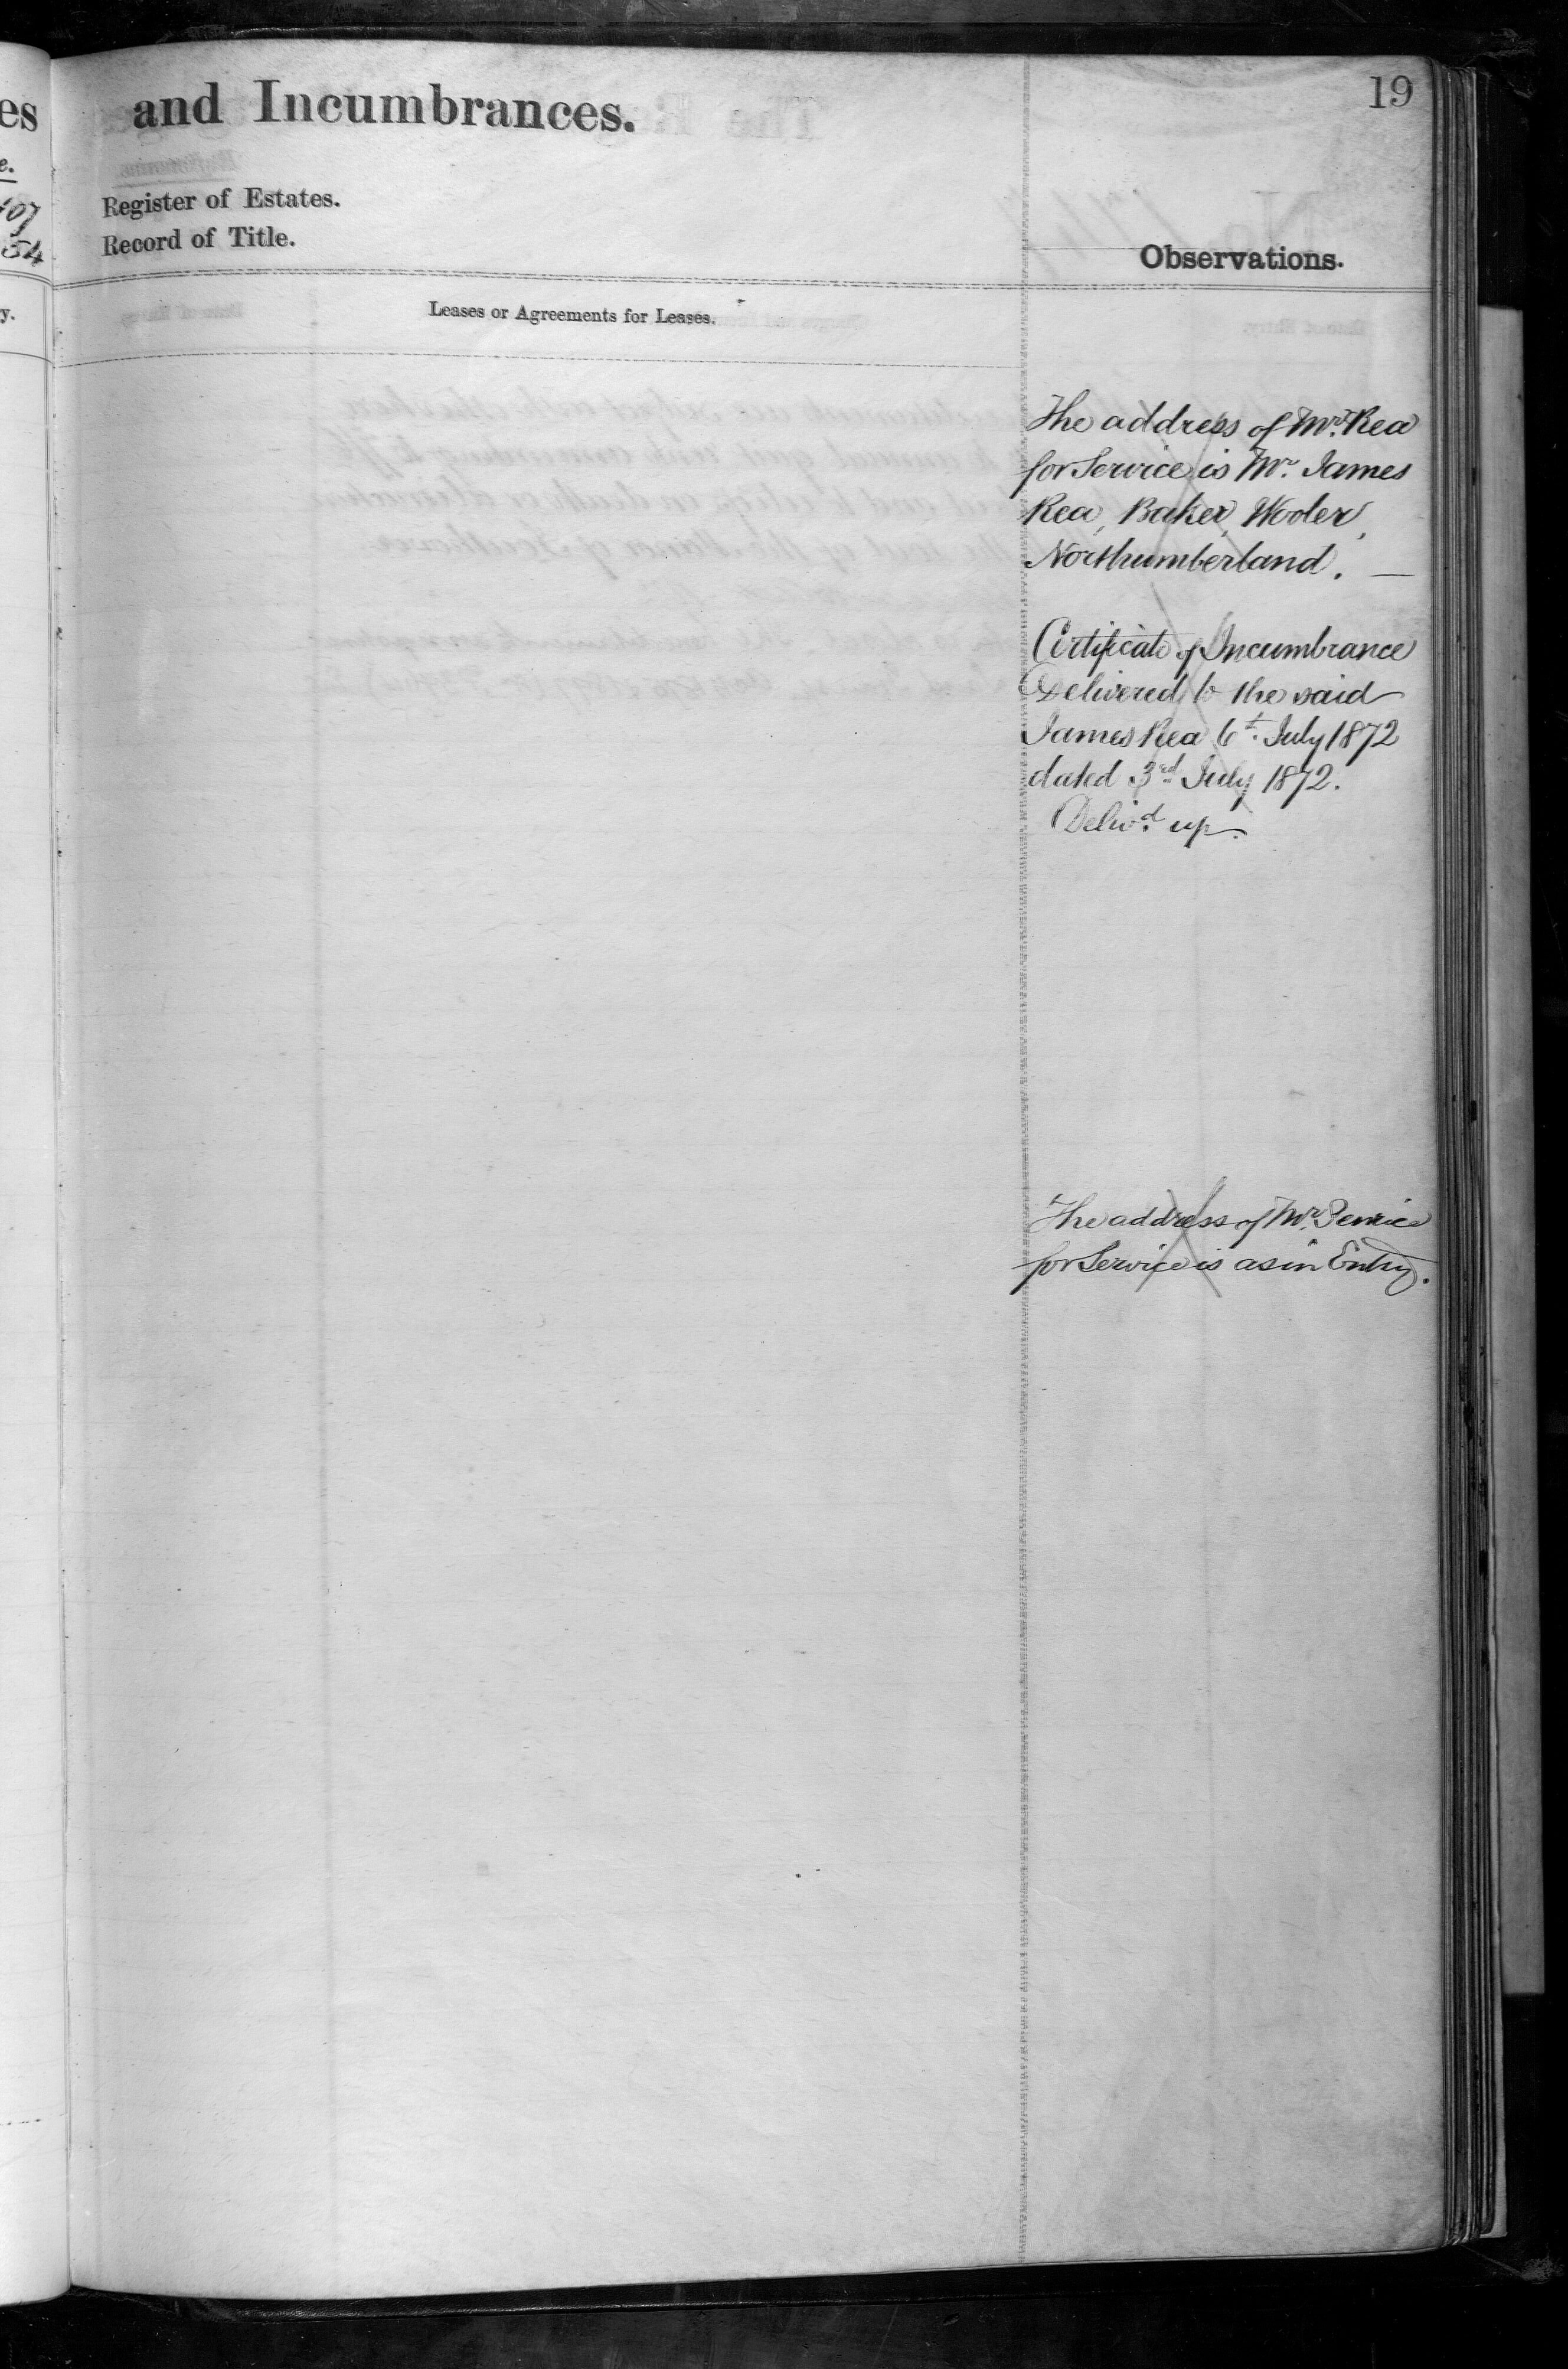 19
and Incumbrances.
Register of Estates.
Record of Title.
Observations.
Leases or Agreements for Leases.
The address of Mr. Rea
for Service is Mr. James
Rea, Baker, Wooler,
Northumberland. —
Certificate of Incumbrance
Delivered to the said
James Rea 6th. July 1872
dated 3rd July 1872.
Delivd. up.
The address of Mr.
for Service is as in Entry.
es
e.
107
54
y.